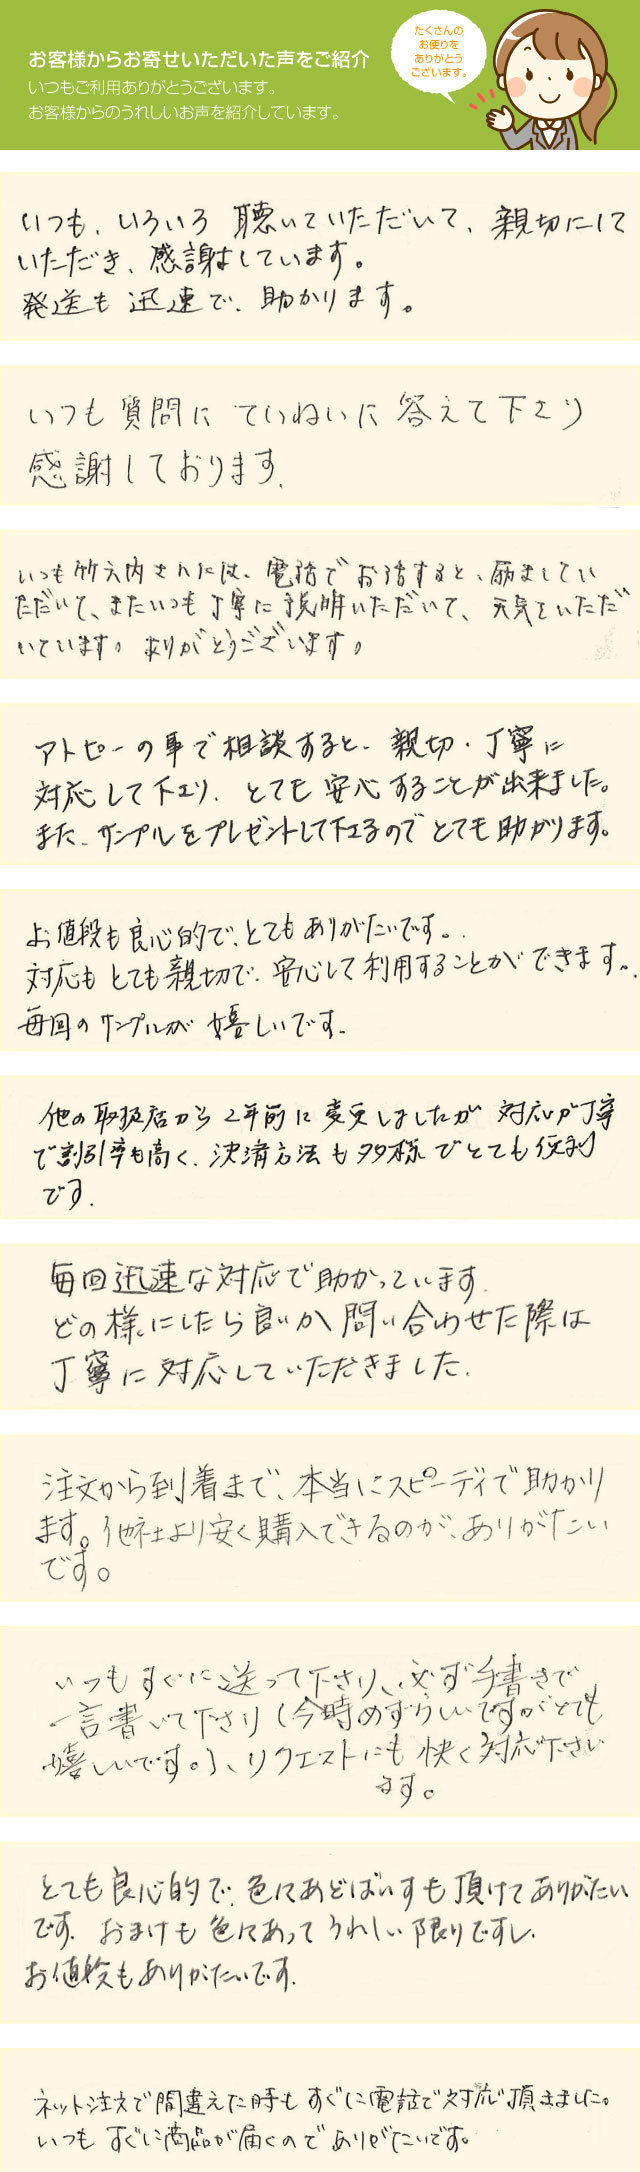 お客様からお寄せいただいた声をご紹介
いつもご利用ありがとうございます。
お客様からのうれしいお声を紹介しています。
たくさんの
お便りを
ありがとう
ございます。
いつも、いろいろ 聴いていただいて、親切にして
いただき、感謝しています。
発送も 迅速で、助かります。
いつも質問に ていねいに 答えて下さり
感謝しております。
いつも竹之内さんには、電話でお話すると、励ましてい
ただいて、またいつも丁寧に説明いただいて、元気をいただ
いています。ありがとうございます。
アトピーの事で相談すると、親切・丁寧に
対応して下さり、とても安心することが出来ました。
また、サンプルをプレゼントして下さるのでとても助かります。
お値段も良心的で、とてもありがたいです。
対応もとても親切で、安心して利用することができます。
毎回のサンプルが 嬉しいです。
他の取扱店から2年前に変更しましたが 対応が丁寧
で割引率も高く、決済方法も多様でとても便利
です。
毎回迅速な対応で助かっています。
どの様にしたら良いか問い合わせた際は
丁寧に対応していただきました。
注文から到着まで、本当にスピーディで助かり
ます。他社より安く購入できるのが、ありがたい
です。
いつもすぐに送って下さり、必ず手書きで
一言書いて下さり(今時めずらしいですがとても
嬉しいです。)、リクエストにも快く対応下さい
ます。
とても良心的で、色々あどばいすも頂けてありがたい
です。おまけも色々あってうれしい限りですし、
お値段もありがたいです。
ネット注文で間違えた時もすぐに電話で対応頂きました。
いつもすぐに商品が届くのでありがたいです。